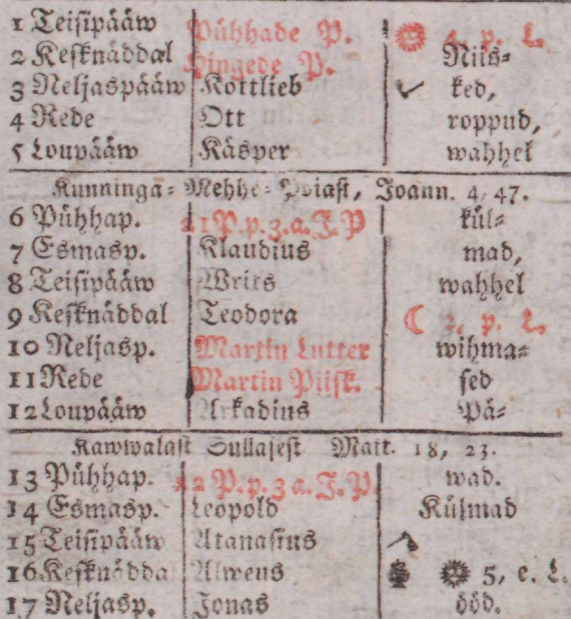 1 Teisipääw Pühhade P. 4. p. L.
2 Kesknäddal Hingede P. Niis-
3 Neljaspääw Kottlieb ked,
4 Rede Ott roppud,
5 Loupääw Käsper wahhel
Kunninga-Mehhe-Poiast, Joann. 4, 47.
6 Pühhap. 21 P. p. 3. a. J. P kül-
7 Esmasp. Klaudius mad,
8 Teisipääw Writs wahhel
9 Kesknäddal Teodora p. L.
10 Neljasp. Martin Lutter wihma-
11 Rede Martin Piisk. sed
12 Loupääw Arkadius Pä-
Kawwalast Sullasest Matt. 18, 23.
13 Pühhap. 22 P. p. 3 a. J. P. wad.
14 Esmasp. Leopold Külmad
15 Teisipääw Atanasius
16 Kesknädda Alwens 5, e. L.
17 Neljasp. Jonas ööd.